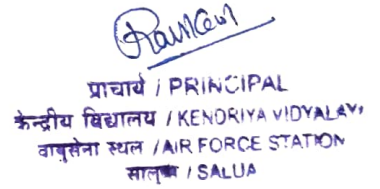 प्राचार्य / PRINCIPAL
केन्द्रीय विद्यालय / KENDRIYA VIDYALAYA
वायुसेना स्थल / AIR FORCE STATION
/ SALUA